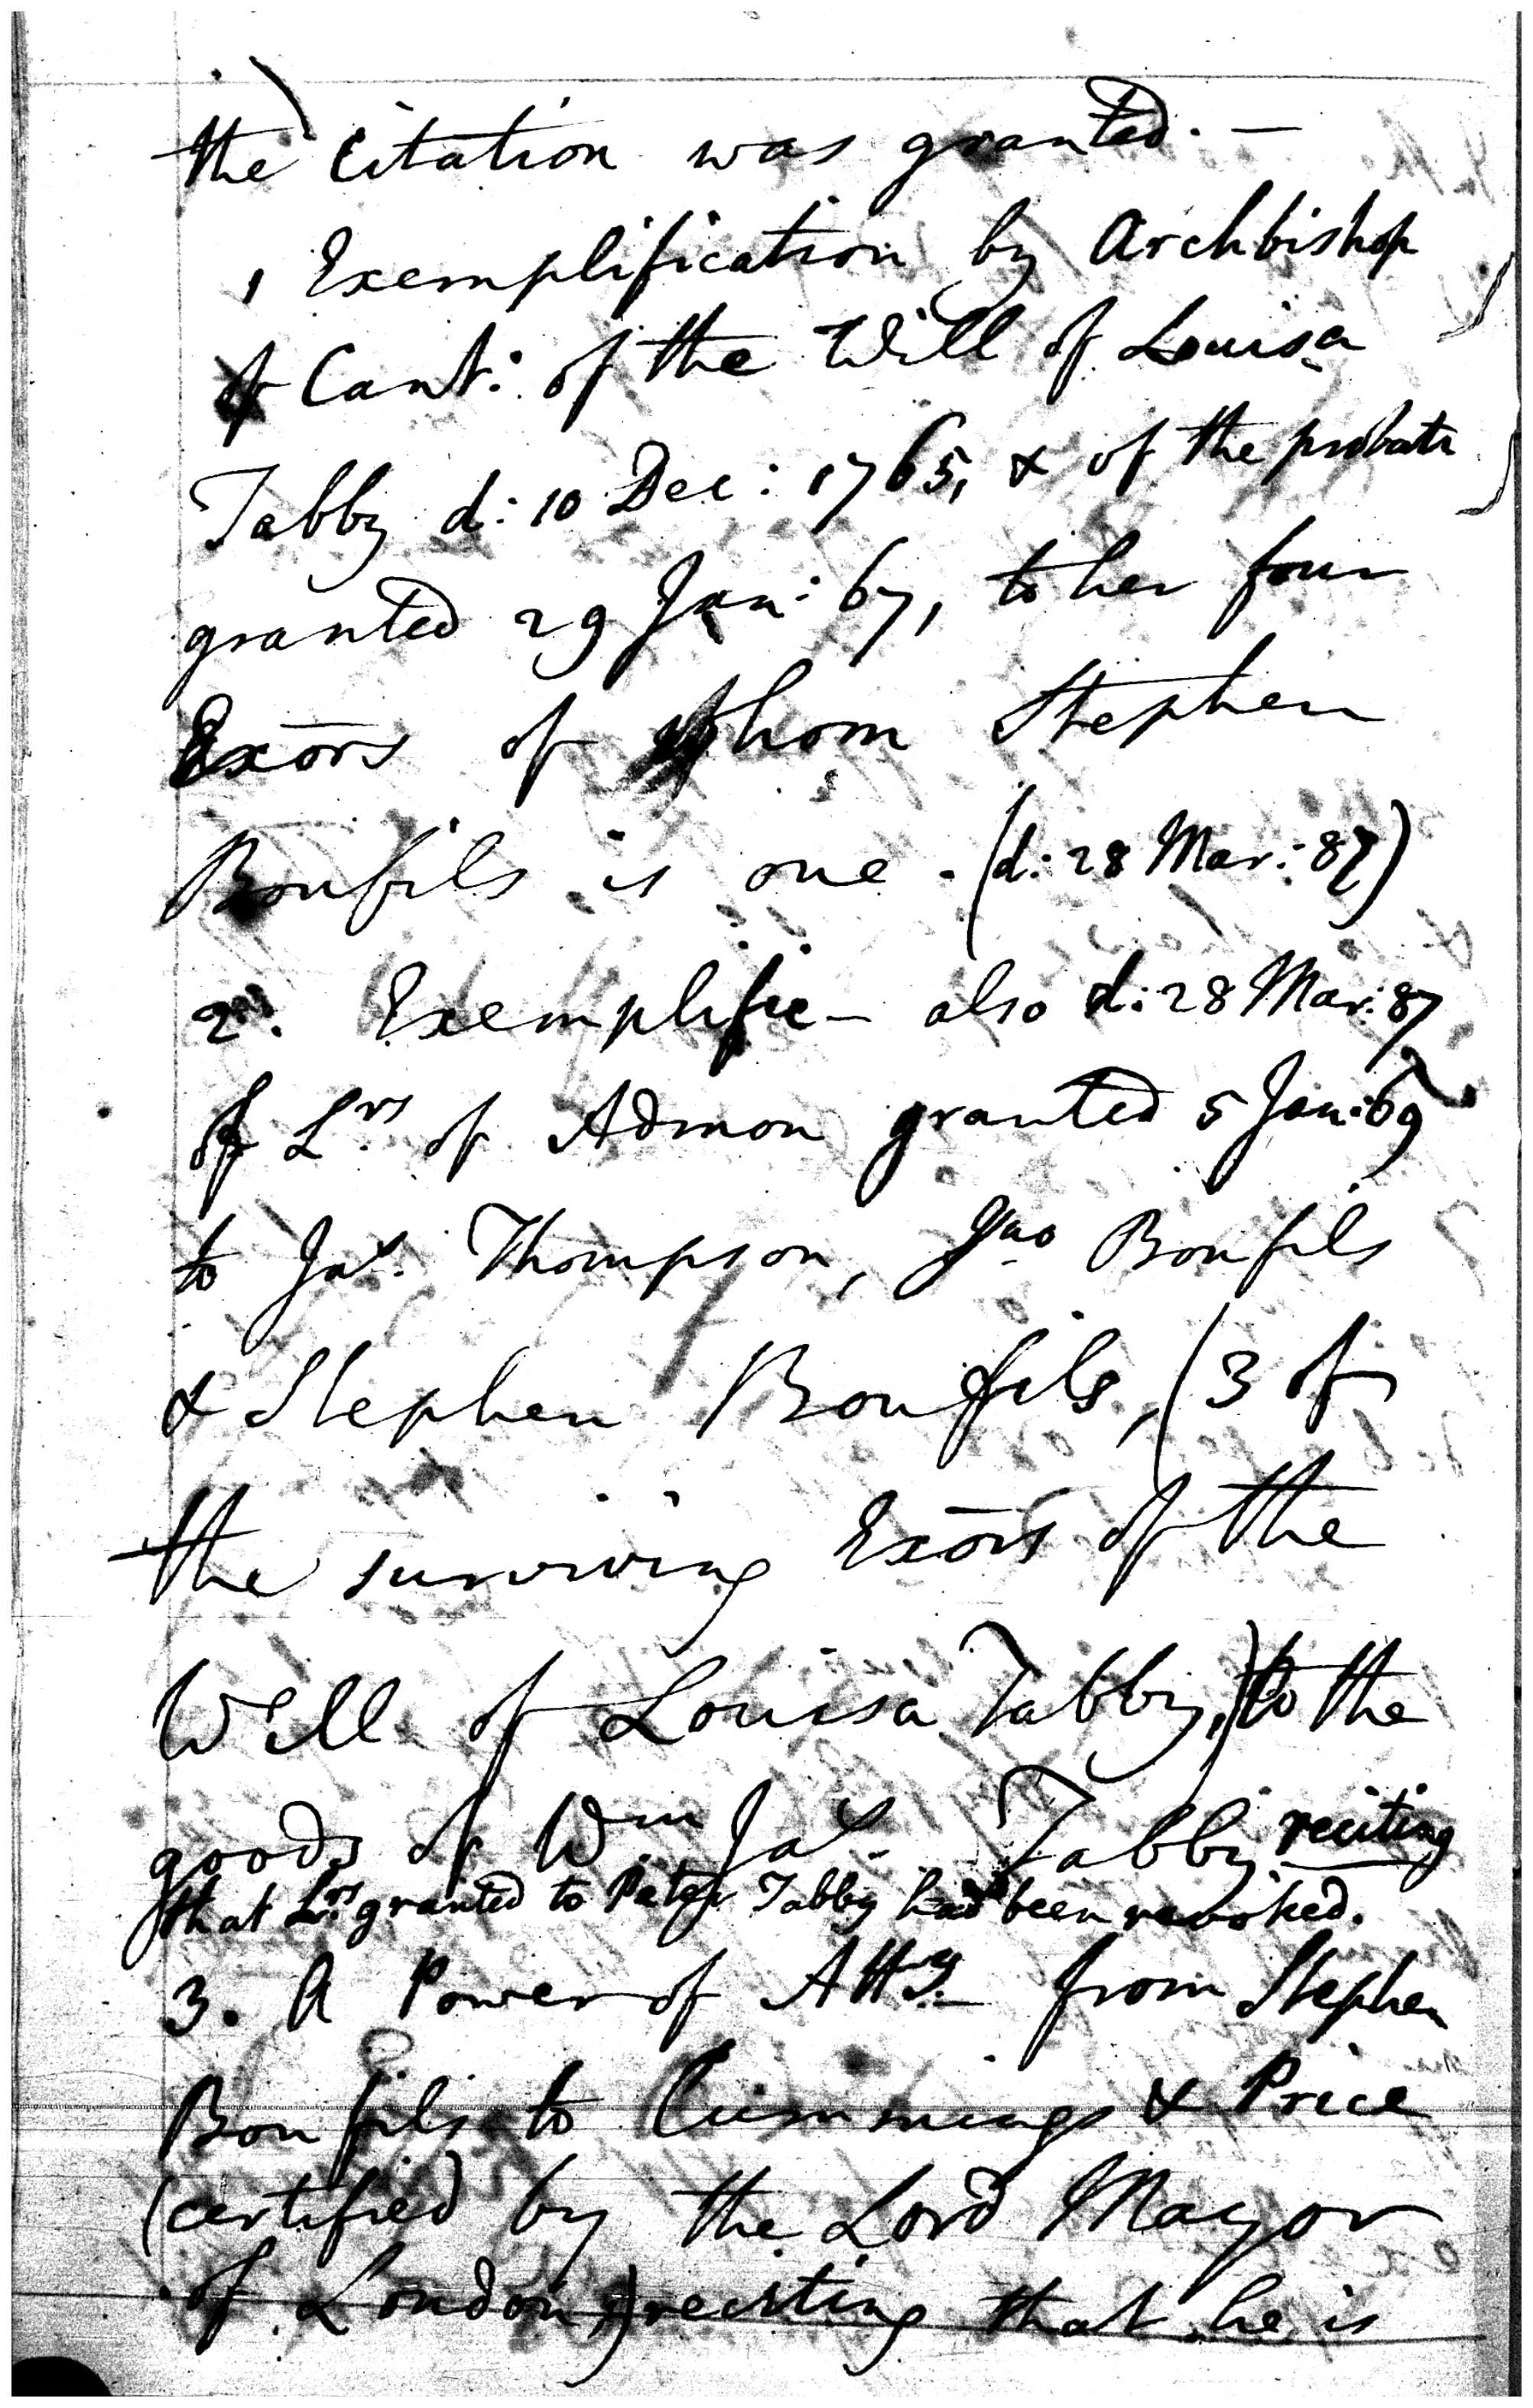 the Citation was granted. —
1 Exemplification by Archbishop
of Cant: of the Will of Louisa
Tabby d: 10 Dec: 1765, & of the probate
granted 29 Jan: 67, to her four
Exōrs of whom Stephen
Bonfils is one. (d: 28 Mar: 87)
2. Exemplific— also d: 28 Mar: 87
of Lrs of Admon granted 5 Jan: 69
to Jas. Thompson, Jno Bonfils
& Stephen Bonfils, (3 of
the surviving Exōrs of the
Will of Louisa Tabby,) to the
goods of Wm Jas. Tabby reciting
that Lrs granted to Peter Tabby had been revoked.
3. A Power of Atty. from Stephen
Bonfils to Cummings & Price
(certified by the Lord Mayor
of London,) reciting that he is